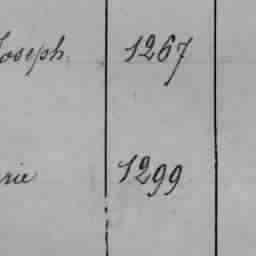 Joseph 1267
rie 1299